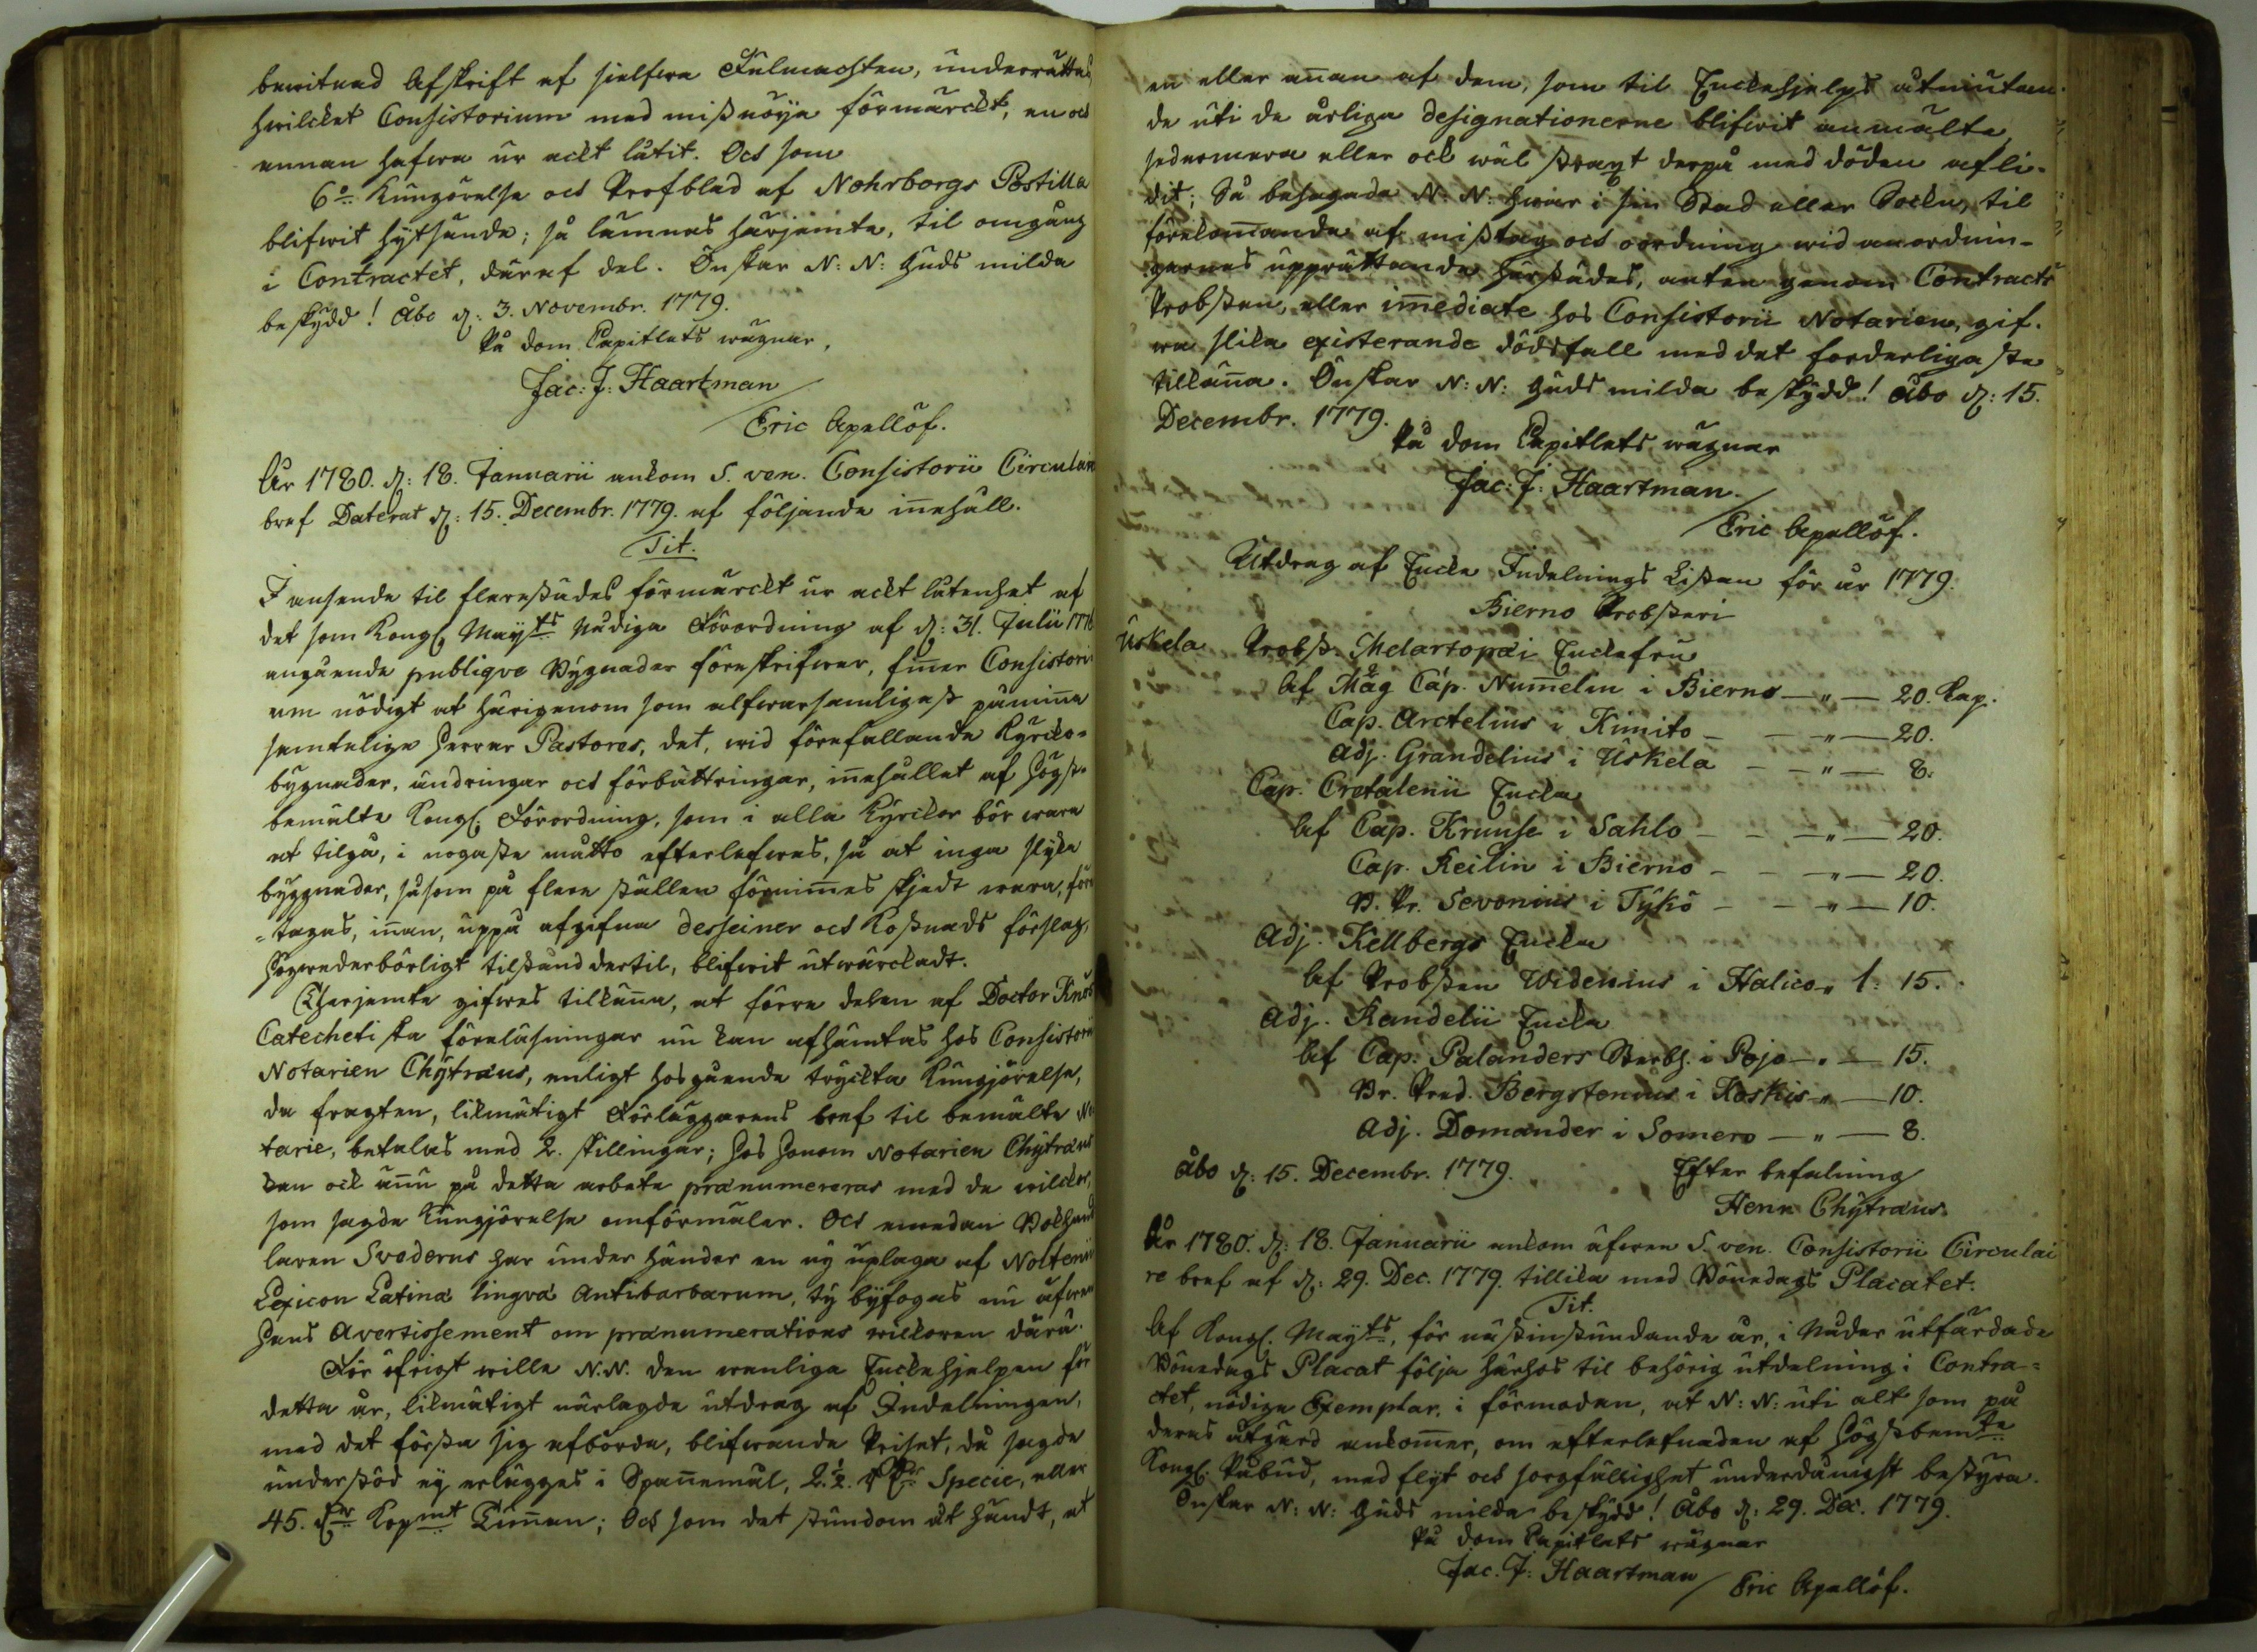 bewitnad Afskrift af sielfwa Fulmachten, underrättas
hwilcket Consistorium med mißnöÿe förmärckt, en och
annan hafwa ur ackt låtit. Och som
6:o Kungörelse och Profblad af Nohrborgs Postilla
blifwit hÿtsände; så lämnas härjemte, til omgång
i Contractet, däraf del. Önskar N: N: Guds milda
beskÿdd! Åbo d: 3. Novembr. 1779.
På Dom Capitlets wägnar,
Jac: J: Haartman
Eric Apellöf.
År 1780. d: 18. Januarii ankom S. ven. Consistorii Circulaire
bref Daterat d: 15. Decembr. 1779. af följande innehåll.
Tit.
I anseende til flerestädes förmärckt ur ackt låtenhet af
det som Kongl. Maÿ:ts Nådiga Förordning af d: 31. Julii 1776
angående publiqve Bÿgnader föreskrifwer, finner Consistori
um nödigt at härigenom som alfwarsamligast påminna
samtelige Herrar Pastores, det, wid förefallande Kÿrcko-
bÿgnader, ändringar och förbättringar, innehållet af Högst-
bemälte Kongl. Förordning, som i alla Kÿrckor bör wara
at tilgå, i nogaste måtto efterlefwes, så at inga slÿka
bÿggnader, såsom på flere ställen förnimmes skjedt wara, före
-tagas, innan, uppå afgifna desseiner och Kostnads förslag,
Högwederbörligt tilstånd dertil, blifwit utwärckadt.
Härjemte gifwes tilkänna, at förra delen af Doctor Knös
Catechetiska föreläsningar nu kan afhämtas hos Consistorii
Notarien Chÿtræus, enligt hosgående trÿckta Kungjörelse,
då fragten, likmätigt Förläggarens bref til bemälte No
tarie, betalas med 2. skillingar; hos honom Notarien Chÿtræus
kan ock ännu på detta arbete prænumereras med de wilckor,
som sagde Kungjörelse omförmäler. Och emedan Bokhand
laren Svederus har under händer en nÿ uplaga af Noltenii
Lexicon Latinæ lingvæ Antibarbarum, tÿ bÿfogas nu äfwen
Hans Avertissement om prænumerations wilckoren därå.
För öfrigt wille N.N. den wanliga Enckehjelpen för
detta år, likmätigt närlagde utdrag af Indelningen,
med det första sig afbörda, blifwande Priset, då sagde
understöd eÿ erlägges i Spannemål, 2. ½. R:dr Specie, eller
45. d:r Kop:mt Tunnan; Och som det stundom åt händt, at
en eller annan af dem, som til Enckehjelps åtniutan-
de uti de årliga designationerne blifwit anmälte,
sedermera eller ock wäl straxt derpå med döden afli-
dit; Så behagade N: N: hwar i sin Stad eller Sockn, til
förekommande af mißtag och oordning wid anordnin-
garnes upprättande härstädes, anten genom Contracts
Probsten, eller immediate hos Consistorii Notarien, gif-
wa slika existerande dödsfall med det forderligaste
tilkänna. Önskar N: N: Guds milda beskÿdd! Åbo d: 15.
Decembr. 1779.
På Dom Capitlets wägnar
Jac: J: Haartman.
Eric Apellöf.
Utdrag af Encke Indelnings Listan för år 1779.
Bierno Probsteri
Uskela Probst. Melartopæi Enckefru
Af Mag Cap. Nummelin i Bierno — " — 20. Kap.
Cap. Arctelius i Kimito — — " — 20.
Adj. Grandelius i Uskela — — " — 8.
Cap. Cretalenii Encka
Af Cap. Kruuse i Sahlo — — " — 20.
Cap. Keilin i Bierno — — " — 20.
B. Pr. Sevonius i Tÿkö — — " — 10.
Adj. Kellbergs Encka
Af Probsten Widenius i Halico " 1: 15.
Adj. Randelii Encka
Af Cap. Palanders Sterbh. i Pojo — " — 15.
Br. Pred. Bergstenius i Koskis " — 10.
Adj. Domander i Somero — " — 8.
Åbo d: 15. Decembr. 1779. Efter befalning
Henr. Chÿtræus.
År 1780. d: 18. Januarii ankom äfwen S. ven. Consistorii Circulai
re bref af d: 29. Dec. 1779. tillika med Bönedags Placatet.
Tit.
Af Kongl. Maÿ:ts, för nästinstundande år, i Nåder utfärdade
Bönedags Placat följa härhos til behörig utdelning i Contra-
ctet, nödige Exemplar, i förmodan, at N: N: uti alt som på
deras åtgärd ankommer, om efterlefnaden af Högstbem:te
Kongl. Påbud, med flÿt och sorgfällighet underdånigst bestÿra.
Önskar N: N: Guds milda beskÿdd! Åbo d: 29. Dec. 1779.
På Dom Capitlets wägnar
Jac. J: Haartman / Eric Apellöf.